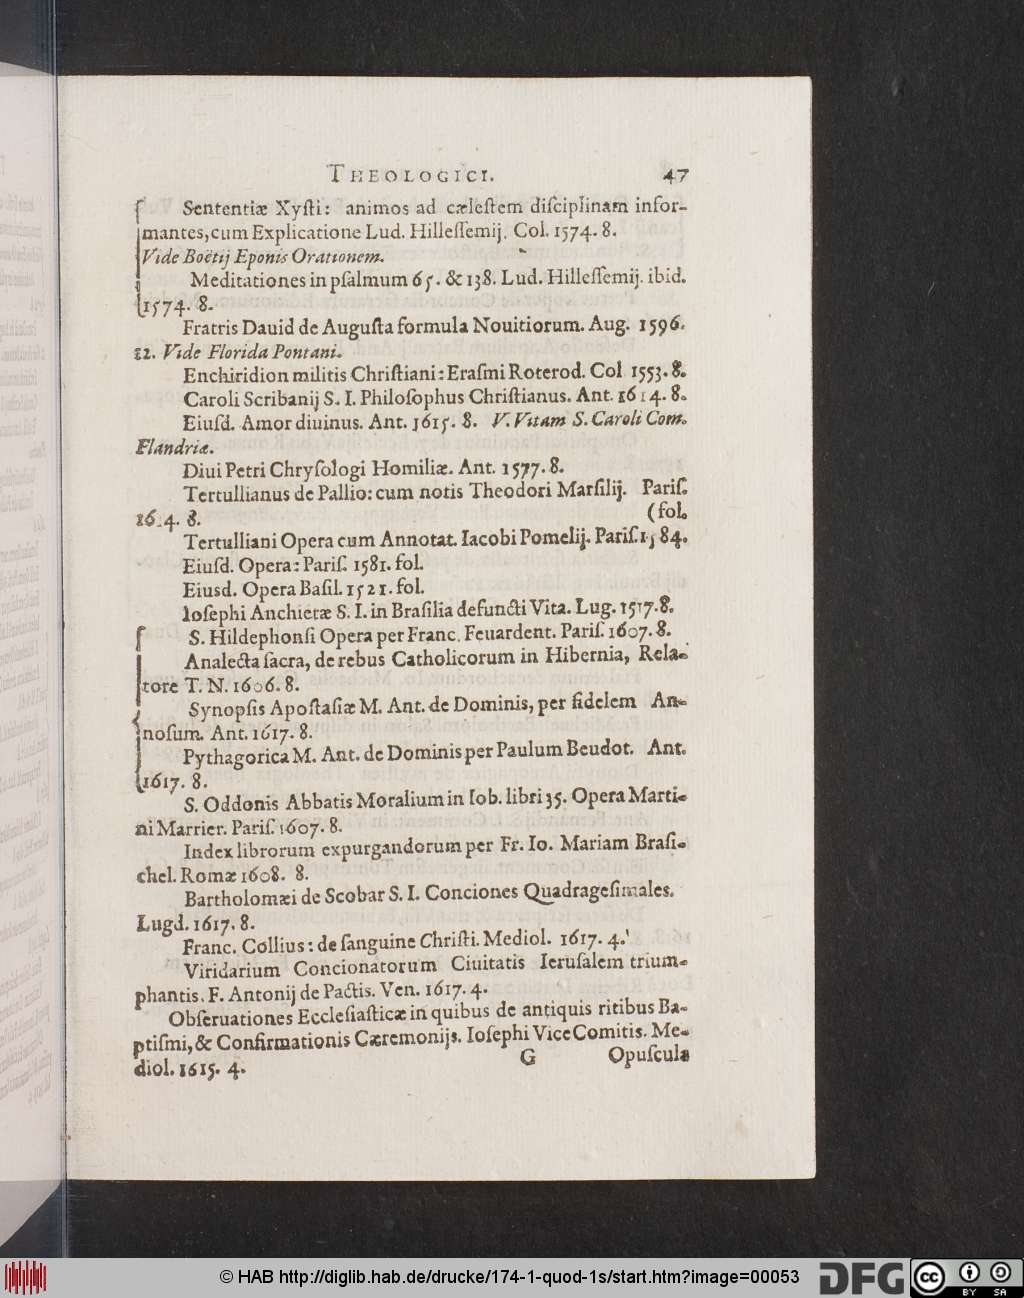 THEOLOGICI. 47
Sententiæ Xyſti: animos ad cæleſtem diſciplinam infor-
mantes, cum Explicatione Lud. Hilleſſemij. Col. 1574. 8.
Vide Boëtij Eponis Orationem.
Meditationes in pſalmum 65. & 138. Lud. Hilleſſemij. ibid.
1574. 8.
Fratris Dauid de Auguſta formula Nouitiorum. Aug. 1596.
12. Vide Florida Pontani.
Enchiridion militis Chriſtiani: Eraſmi Roterod. Col 1553. 8.
Caroli Scribanij S. I. Philoſophus Chriſtianus. Ant. 1614. 8.
Eiuſd. Amor diuinus. Ant. 1615. 8. V. Vitam S. Caroli Com.
Flandriæ.
Diui Petri Chryſologi Homiliæ. Ant. 1577. 8.
Tertullianus de Pallio: cum notis Theodori Marſilij. Pariſ.
16 4. 8. (fol.
Tertulliani Opera cum Annotat. Iacobi Pomelij. Pariſ. 1584.
Eiuſd. Opera: Pariſ. 1581. fol.
Eiusd. Opera Baſil. 1521. fol.
Ioſephi Anchietæ S. I. in Braſilia defuncti Vita. Lug. 1517. 8.
S. Hildephonſi Opera per Franc. Feuardent. Pariſ. 1607. 8.
Analecta ſacra, de rebus Catholicorum in Hibernia, Rela-
tore T. N. 1606. 8.
Synopſis Apoſtaſiæ M. Ant. de Dominis, per fidelem An-
noſum. Ant. 1617. 8.
Pythagorica M. Ant. de Dominis per Paulum Beudot. Ant.
1617. 8.
S. Oddonis Abbatis Moralium in Iob. libri 35. Opera Marti-
ni Marrier. Pariſ. 1607. 8.
Index librorum expurgandorum per Fr. Io. Mariam Braſi-
chel. Romæ 1608. 8.
Bartholomæi de Scobar S. I. Conciones Quadrageſimales.
Lugd. 1617. 8.
Franc. Collius: de ſanguine Chriſti. Mediol. 1617. 4.
Viridarium Concionatorum Ciuitatis Ieruſalem trium-
phantis. F. Antonij de Pactis. Ven. 1617. 4.
Obſeruationes Eccleſiaſticæ in quibus de antiquis ritibus Ba-
ptiſmi, & Confirmationis Cæremonijs. Ioſephi ViceComitis. Me-
diol. 1615. 4.
G Opuſcula
© HAB http://diglib.hab.de/drucke/174-1-quod-1s/start.htm?image=00053
DFG
cc BY SA